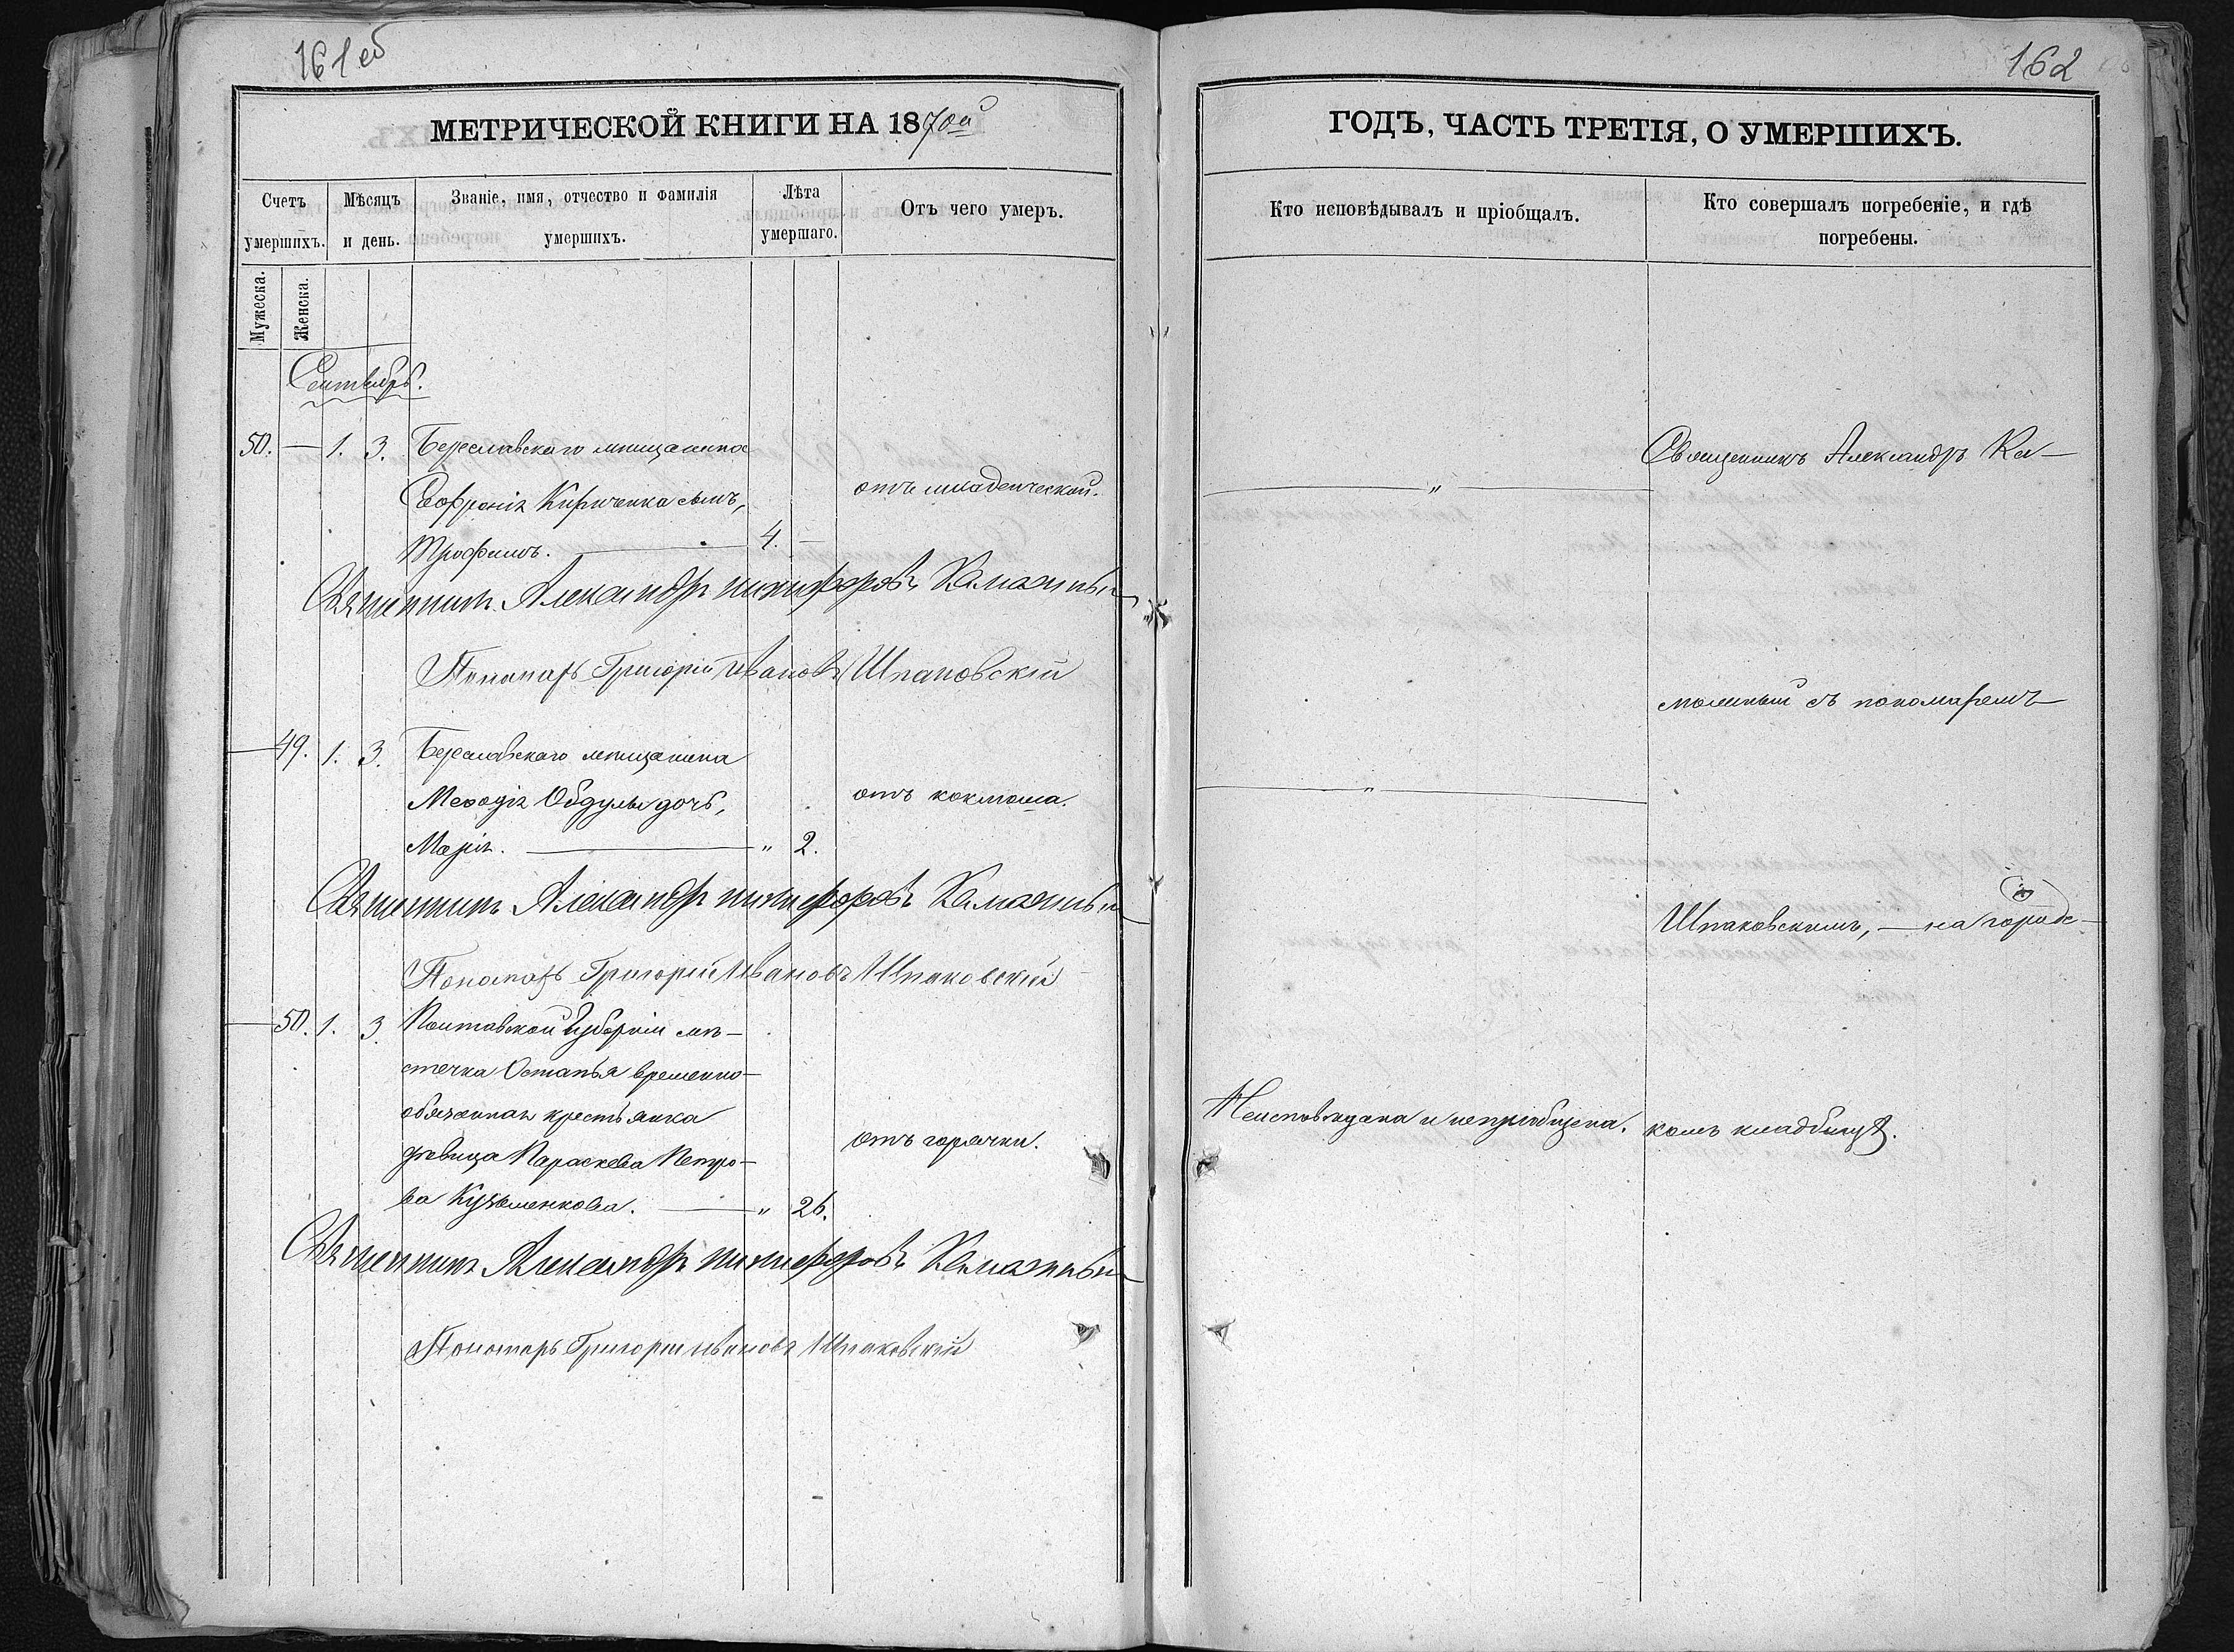 161об
МЕТРИЧЕСКОЙ КНИГИ НА 1870й
Счетъ умершихъ.
Мѣсяцъ и день.
Званіе, имя, отчество и фамилія умершихъ.
Лѣта умершаго.
Отъ чего умеръ.
Мужеска.
Женска.
Сентябрь.
50. — 1. 3. Береславскаго мѣщанина
Софронія Кириченка сынъ,
Трофимъ. — 4. —
отъ младенческой.
Священникъ Александръ Никифоровъ
Пономарь Григорій Ивановъ Шпаковскій
— 49. 1. 3. Береславскаго мѣщанина
Меѳодія дочь,
Марія. — " 2.
отъ коклюша.
Священникъ Александръ Никифоровъ
Пономарь Григорій Ивановъ Шпаковскій
— 50. 1. 3. Полтавской Губерніи мѣ-
стечка Остапья временно-
обязанная крестьянка
дѣвица Параскева Петро-
ва Кузьменкова. — " 26.
отъ горячки.
Священникъ Александръ Никифоровъ
Пономарь Григорій Ивановъ Шпаковскій
162
ГОДЪ, ЧАСТЬ ТРЕТІЯ, О УМЕРШИХЪ.
Кто исповѣдывалъ и пріобщалъ.
Кто совершалъ погребеніе, и гдѣ погребены.
— " —
Священникъ Александръ
съ пономаремъ
— " —
Шпаковскимъ, — на городс-
Неисповѣдана и непріобщена.
комъ кладбищѣ.